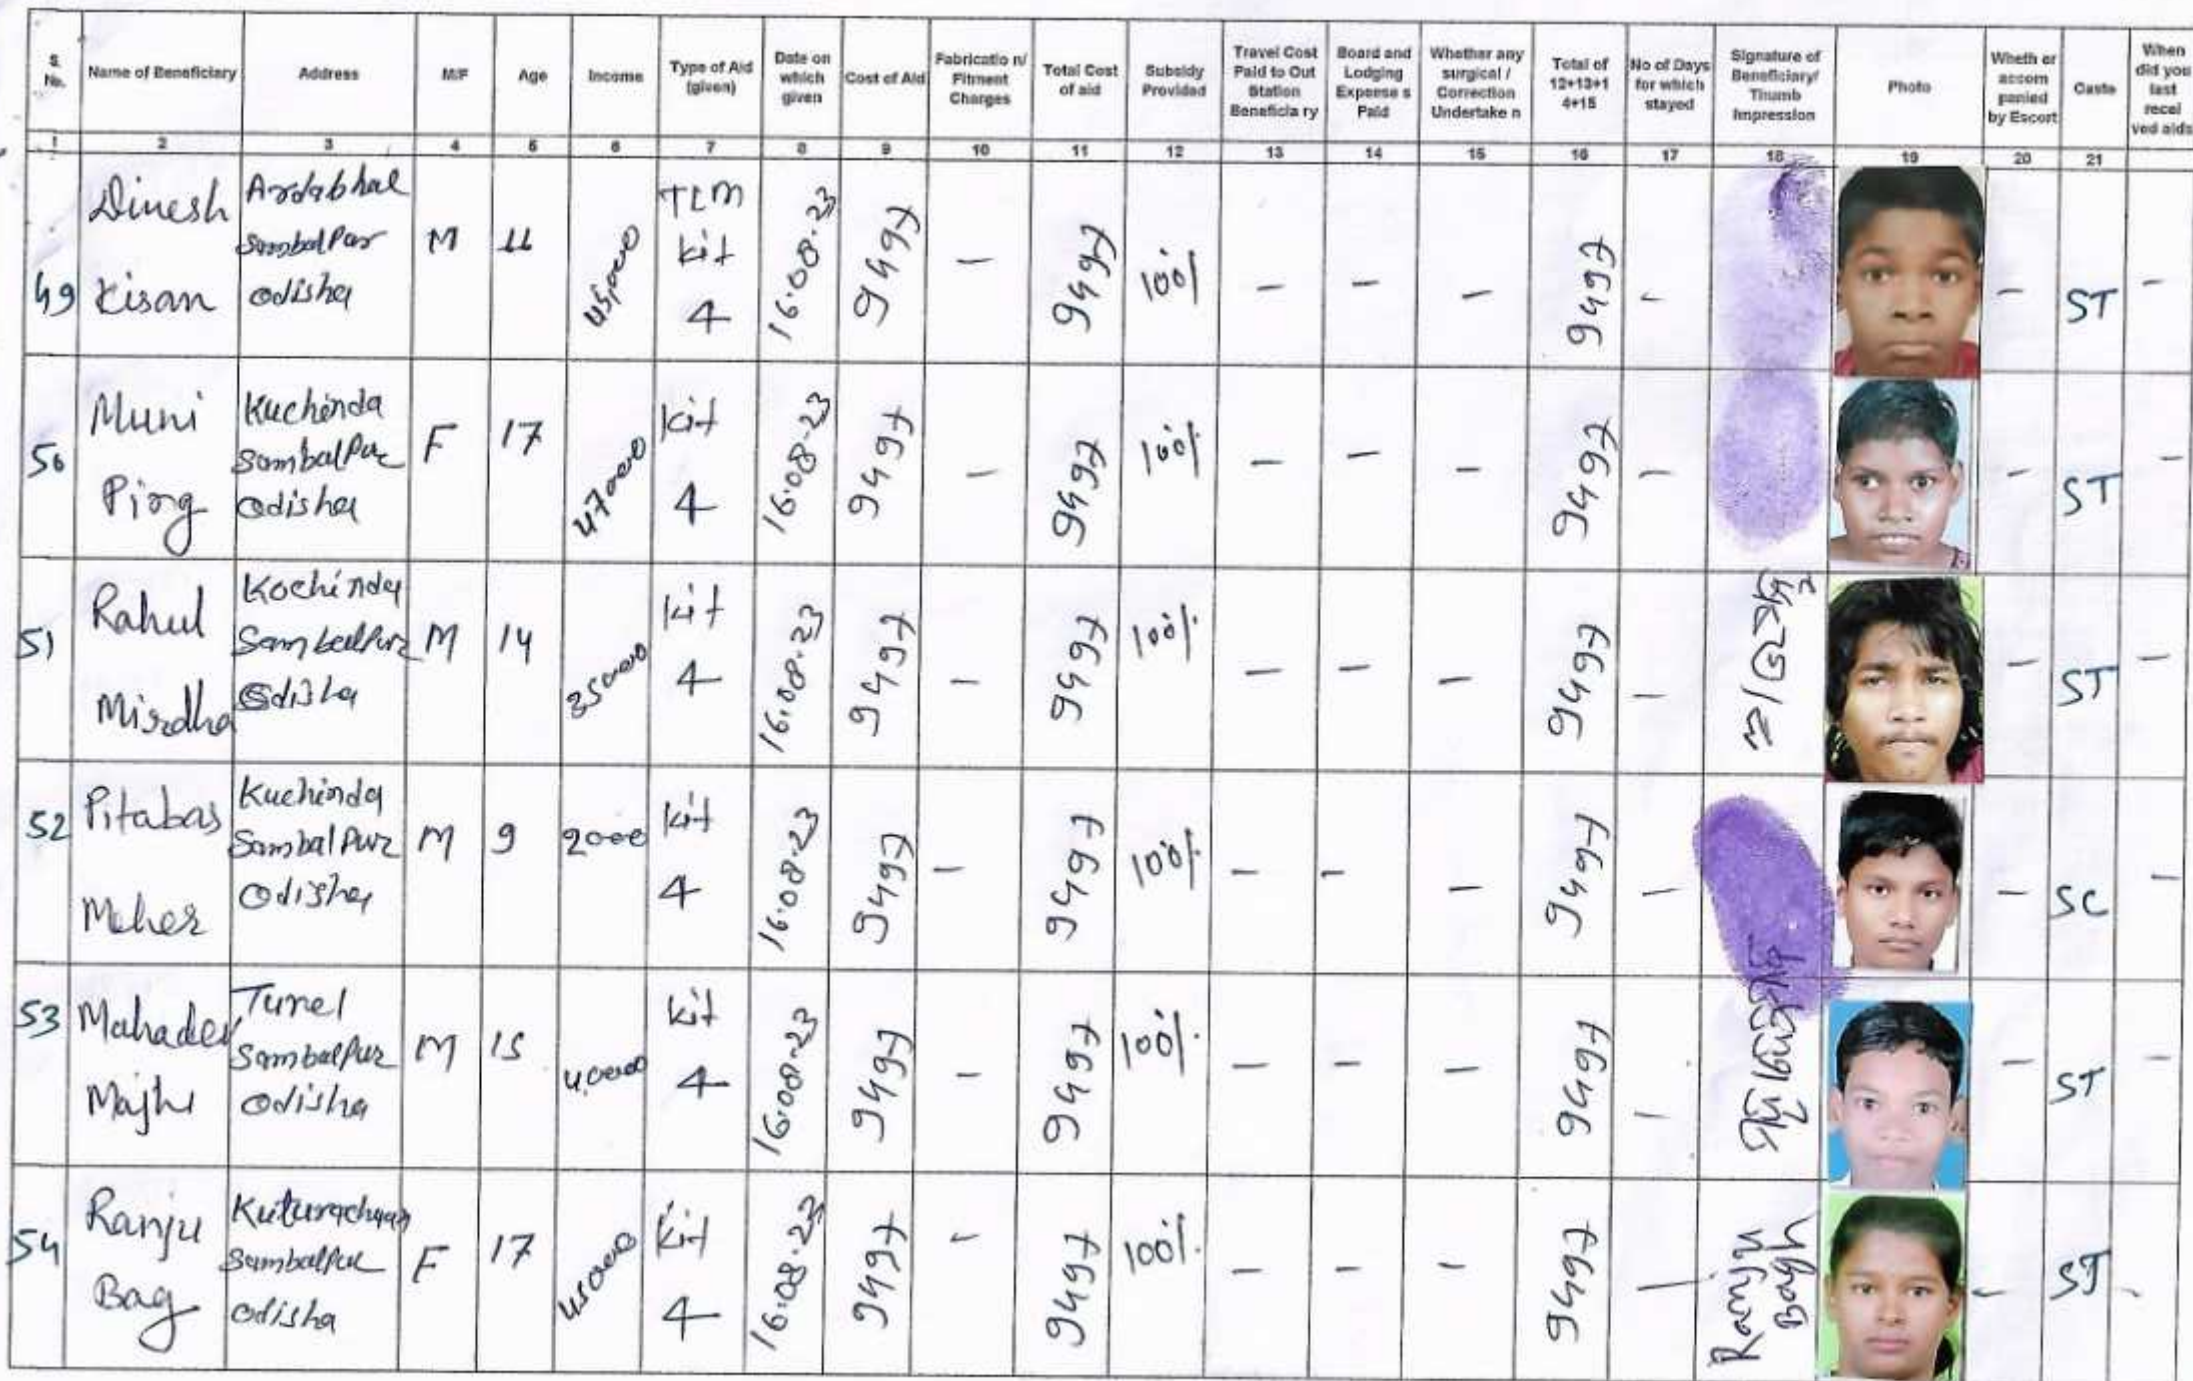 S. No. Name of Beneficiary Address M/F Age Income Type of Aid (given) Date on which given Cost of Aid Fabricatio n/ Fitment Charges Total Cost of aid Subsidy Provided Travel Cost Paid to Out Station Beneficia ry Board and Lodging Expense s Paid Whether any surgical / Correction Undertake n Total of 12+13+1 4+15 No of Days for which stayed Signature of Beneficiary/ Thumb Impression Photo Wheth er accom panied by Escort Caste When did you last recei ved aids
1 2 3 4 5 6 7 8 9 10 11 12 13 14 15 16 17 18 19 20 21
49 Dinesh Kisan Ardabhal Sambalpar odisha M 11 45,000 TLM kit 4 16.08.23 9497 - 9497 100% - - - 9497 - - ST -
50 Muni Ping Kuchinda Sambalpur Odisha F 17 47000 kit 4 16.08.23 9497 - 9497 100% - - - 9497 - - ST -
51 Rahul Mirdha Kochinda Sambalpur Odisha M 14 35000 kit 4 16.08.23 9497 - 9497 100% - - - 9497 - - ST -
52 Pitabas Meher Kuchinda Sambalpur Odisha M 9 2000 kit 4 16.08.23 9497 - 9497 100% - - - 9497 - - SC -
53 Mahadev Majhi Turel Sambalpur odisha M 15 40000 kit 4 16.08.23 9497 - 9497 100% - - - 9497 - - ST -
54 Ranju Bag Sambalpur odisha F 17 45000 kit 4 16.08.23 9497 - 9497 100% - - - 9497 - Ranju Bagh - ST -